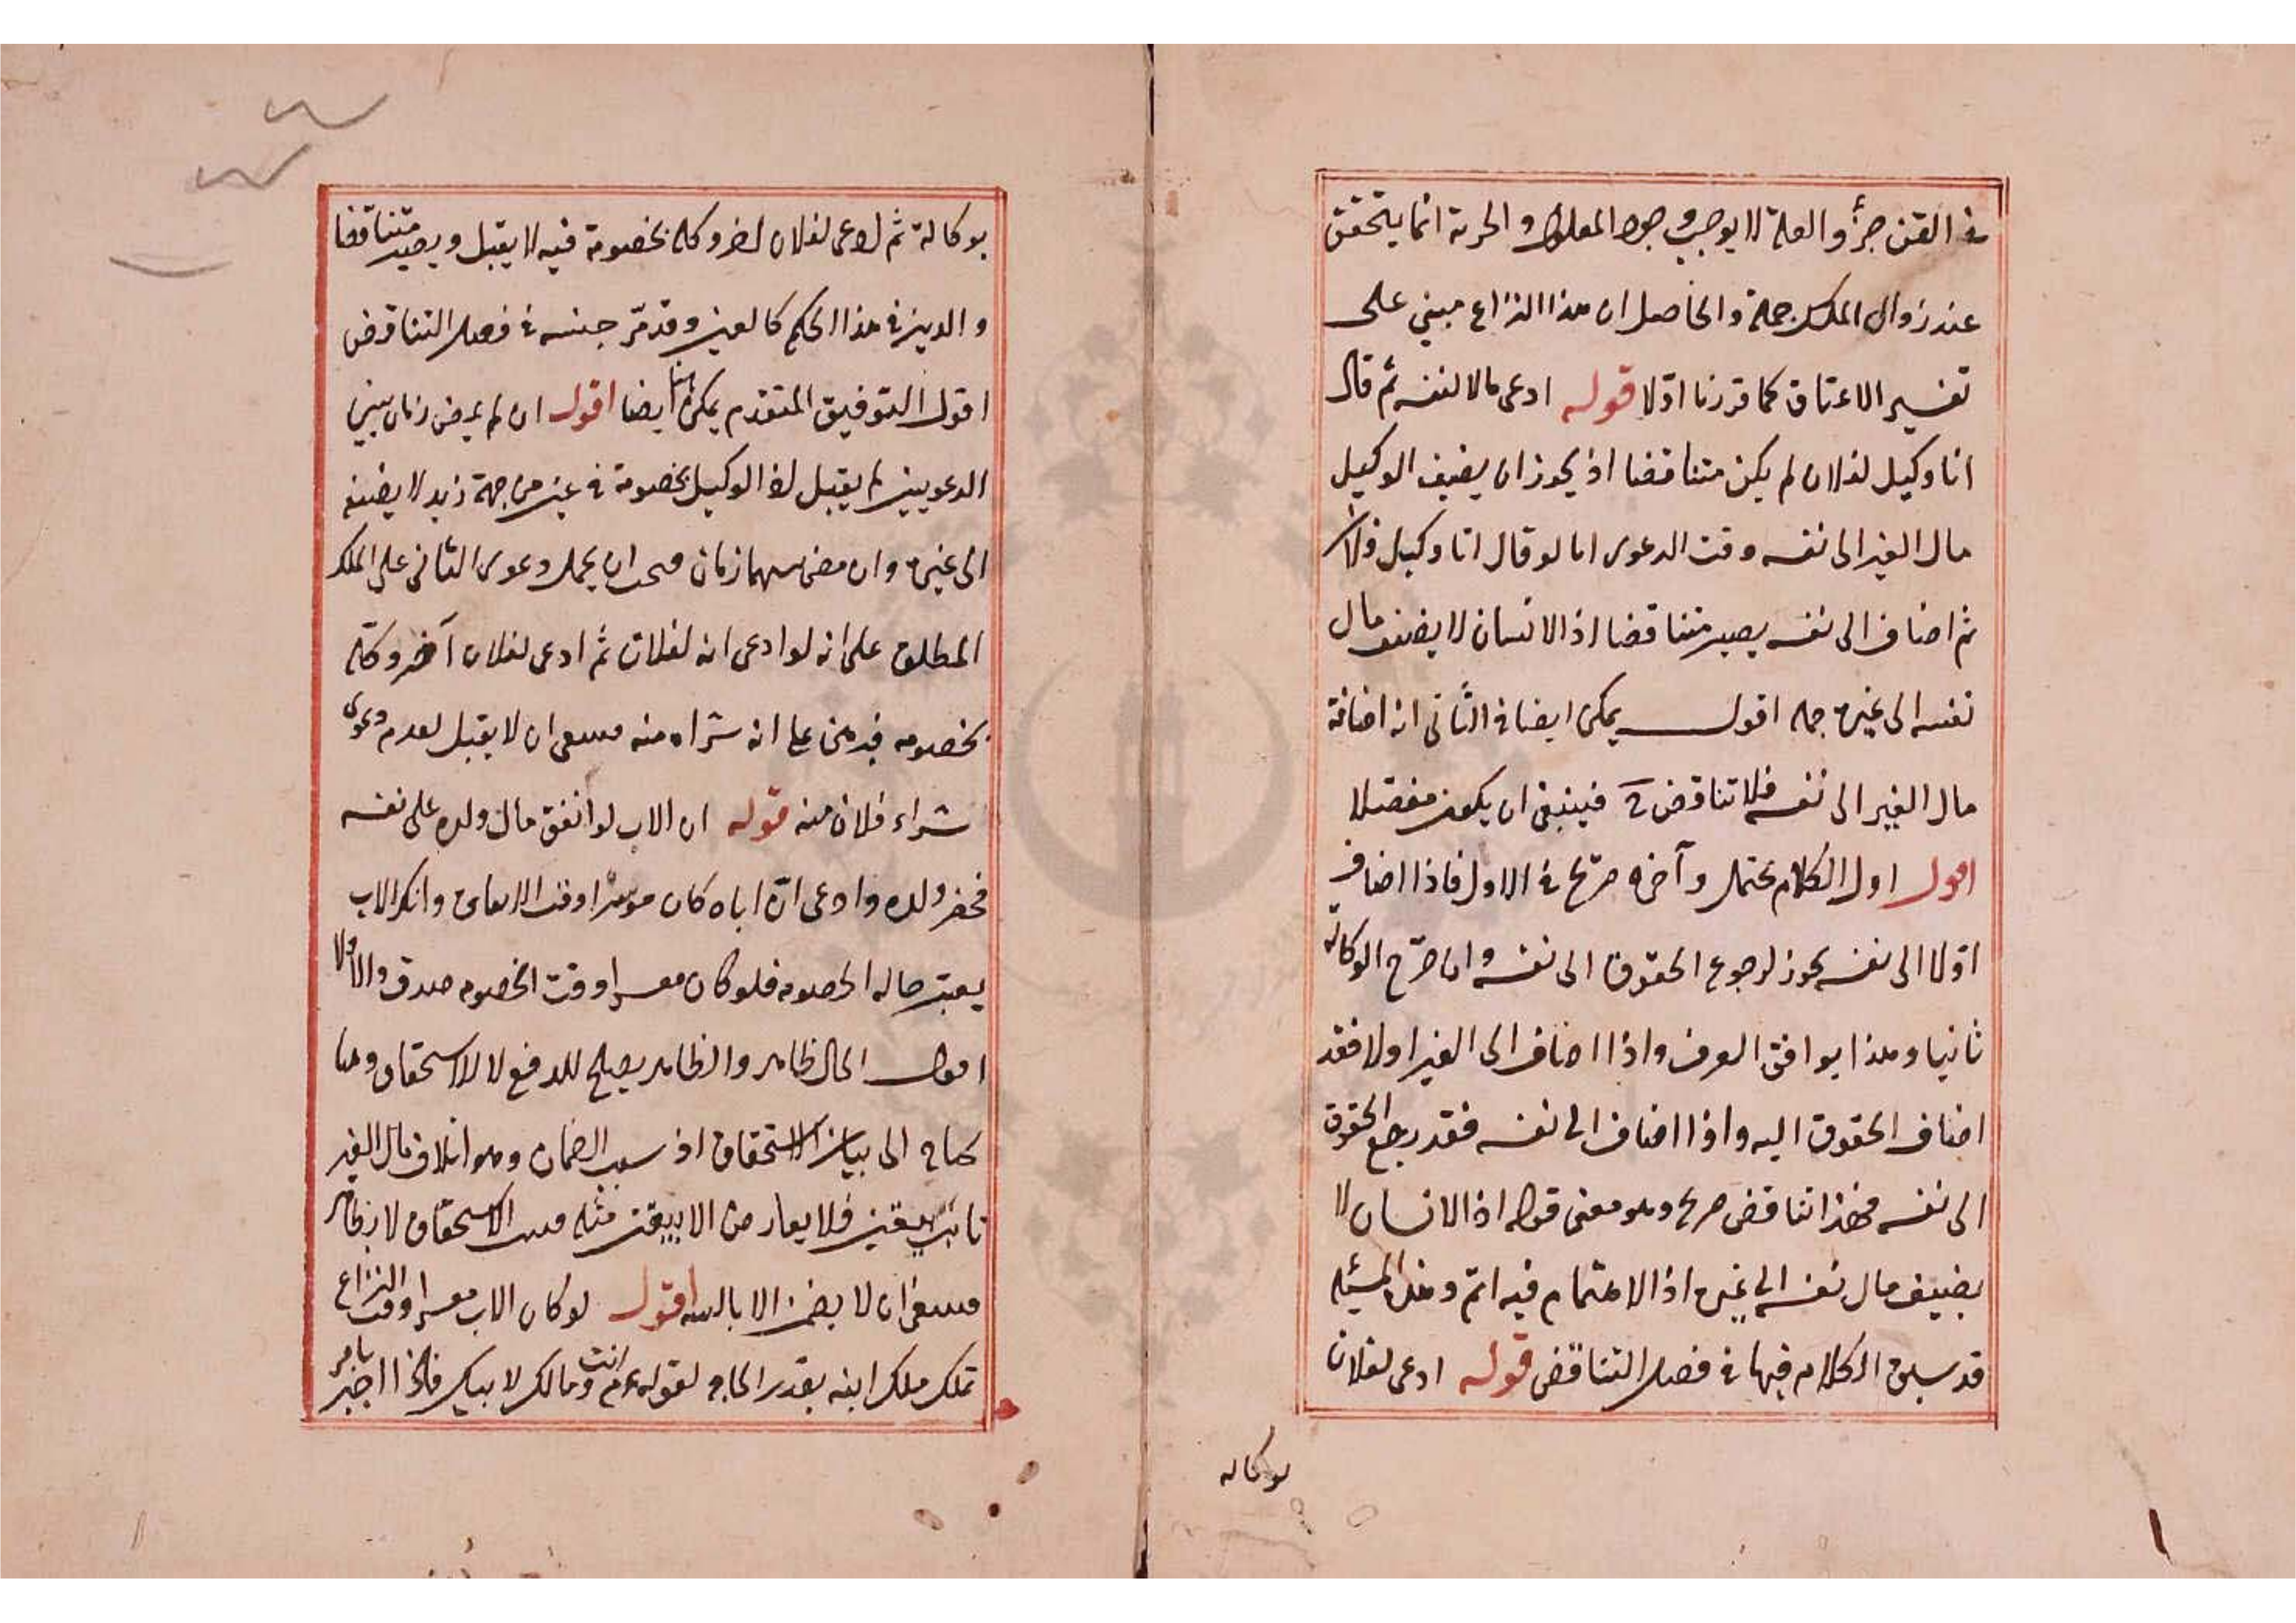 في القن جزأ والعلة لا يوجب وجود المعلول والحرية انما يتحقق
عند زوال الملك جملة والحاصل ان هذا النزاع مبني على
تفسير الاعتاق كما قررنا اولا قوله ادعى مالا لنفسه ثم قال
انا وكيل لفلان لم يكن متناقضا اذ يجوز ان يضيف الوكيل
مال الغير الى نفسه وقت الدعوى اما لو قال انا وكيل فلان
ثم اضاف الى نفسه يصير متناقضا اذ الانسان لا يضيف مال
نفسه الى غيره جملة اقول يمكن ايضا في الثاني انه اضافة
مال الغير الى نفسه فلا تناقض ح فينبغي ان يكون مفصلا
اقول اول الكلام محتمل وآخره صريح في الاول فاذا اضاف
اولا الى نفسه يجوز لرجوع الحقوق الى نفسه وان صرح الوكالة
ثانيا وهذا يوافق العرف واذا اضاف الى الغير اولا فقد
اضاف الحقوق اليه واذا اضاف الى نفسه فقد رجع الحقوق
الى نفسه فهذا تناقض صريح وهو معنى قوله اذ الانسان لا
يضيف مال نفسه الى غيره اذ الاهتمام فيه اتم وهذه المسئلة
قد سبق الكلام فيها في فصل التناقض قوله ادعى لفلان
بوكالة
بوكالة ثم ادعى لفلان اخر وكله بخصومة فيه لا يقبل ويصير متناقضا
والدين في هذا الحكم كالعين وقد مر جنسه في فصل التناقض
اقول التوفيق المتقدم يمكن هنا ايضا اقول ان لم يمض زمان بين
الدعويين لم يقبل اذ الوكيل بخصومة في عين من جهة زيد لا يضيفه
الى غيره وان مضى بينهما زمان يحمل دعوى الثاني على الملك
المطلق على انه لو ادعى انه لفلان ثم ادعى لفلان آخر وكله
بخصومه فبرهن على انه شراه منه فينبغي ان لا يقبل لعدم دعوى
شراء فلان منه قوله ان الاب لو انفق مال ولده على نفسه
فحضر ولده وادعى ان اباه كان موسرا وقت الانفاق وانكر الاب
يعتبر حاله الخصومه فلو كان معسرا وقت الخصومه صدق والا لا
اقول الحال ظاهر والظاهر يصلح للدفع لا للاستحقاق وهنا
يحتاج الى بيان الاستحقاق اذ سبب الضمان وهو اتلاف مال الغير
ثابت بيقين فلا يعارض الا بيقين مثله الاستحقاق لا بظاهر
فينبغي ان لا يضمن الا بالبينه اقول لو كان الاب معسرا وقت النزاع
تملك ملك ابنه بقدر الحاجه لقوله عم انت ومالك لابيك فاذا اجبر بامر